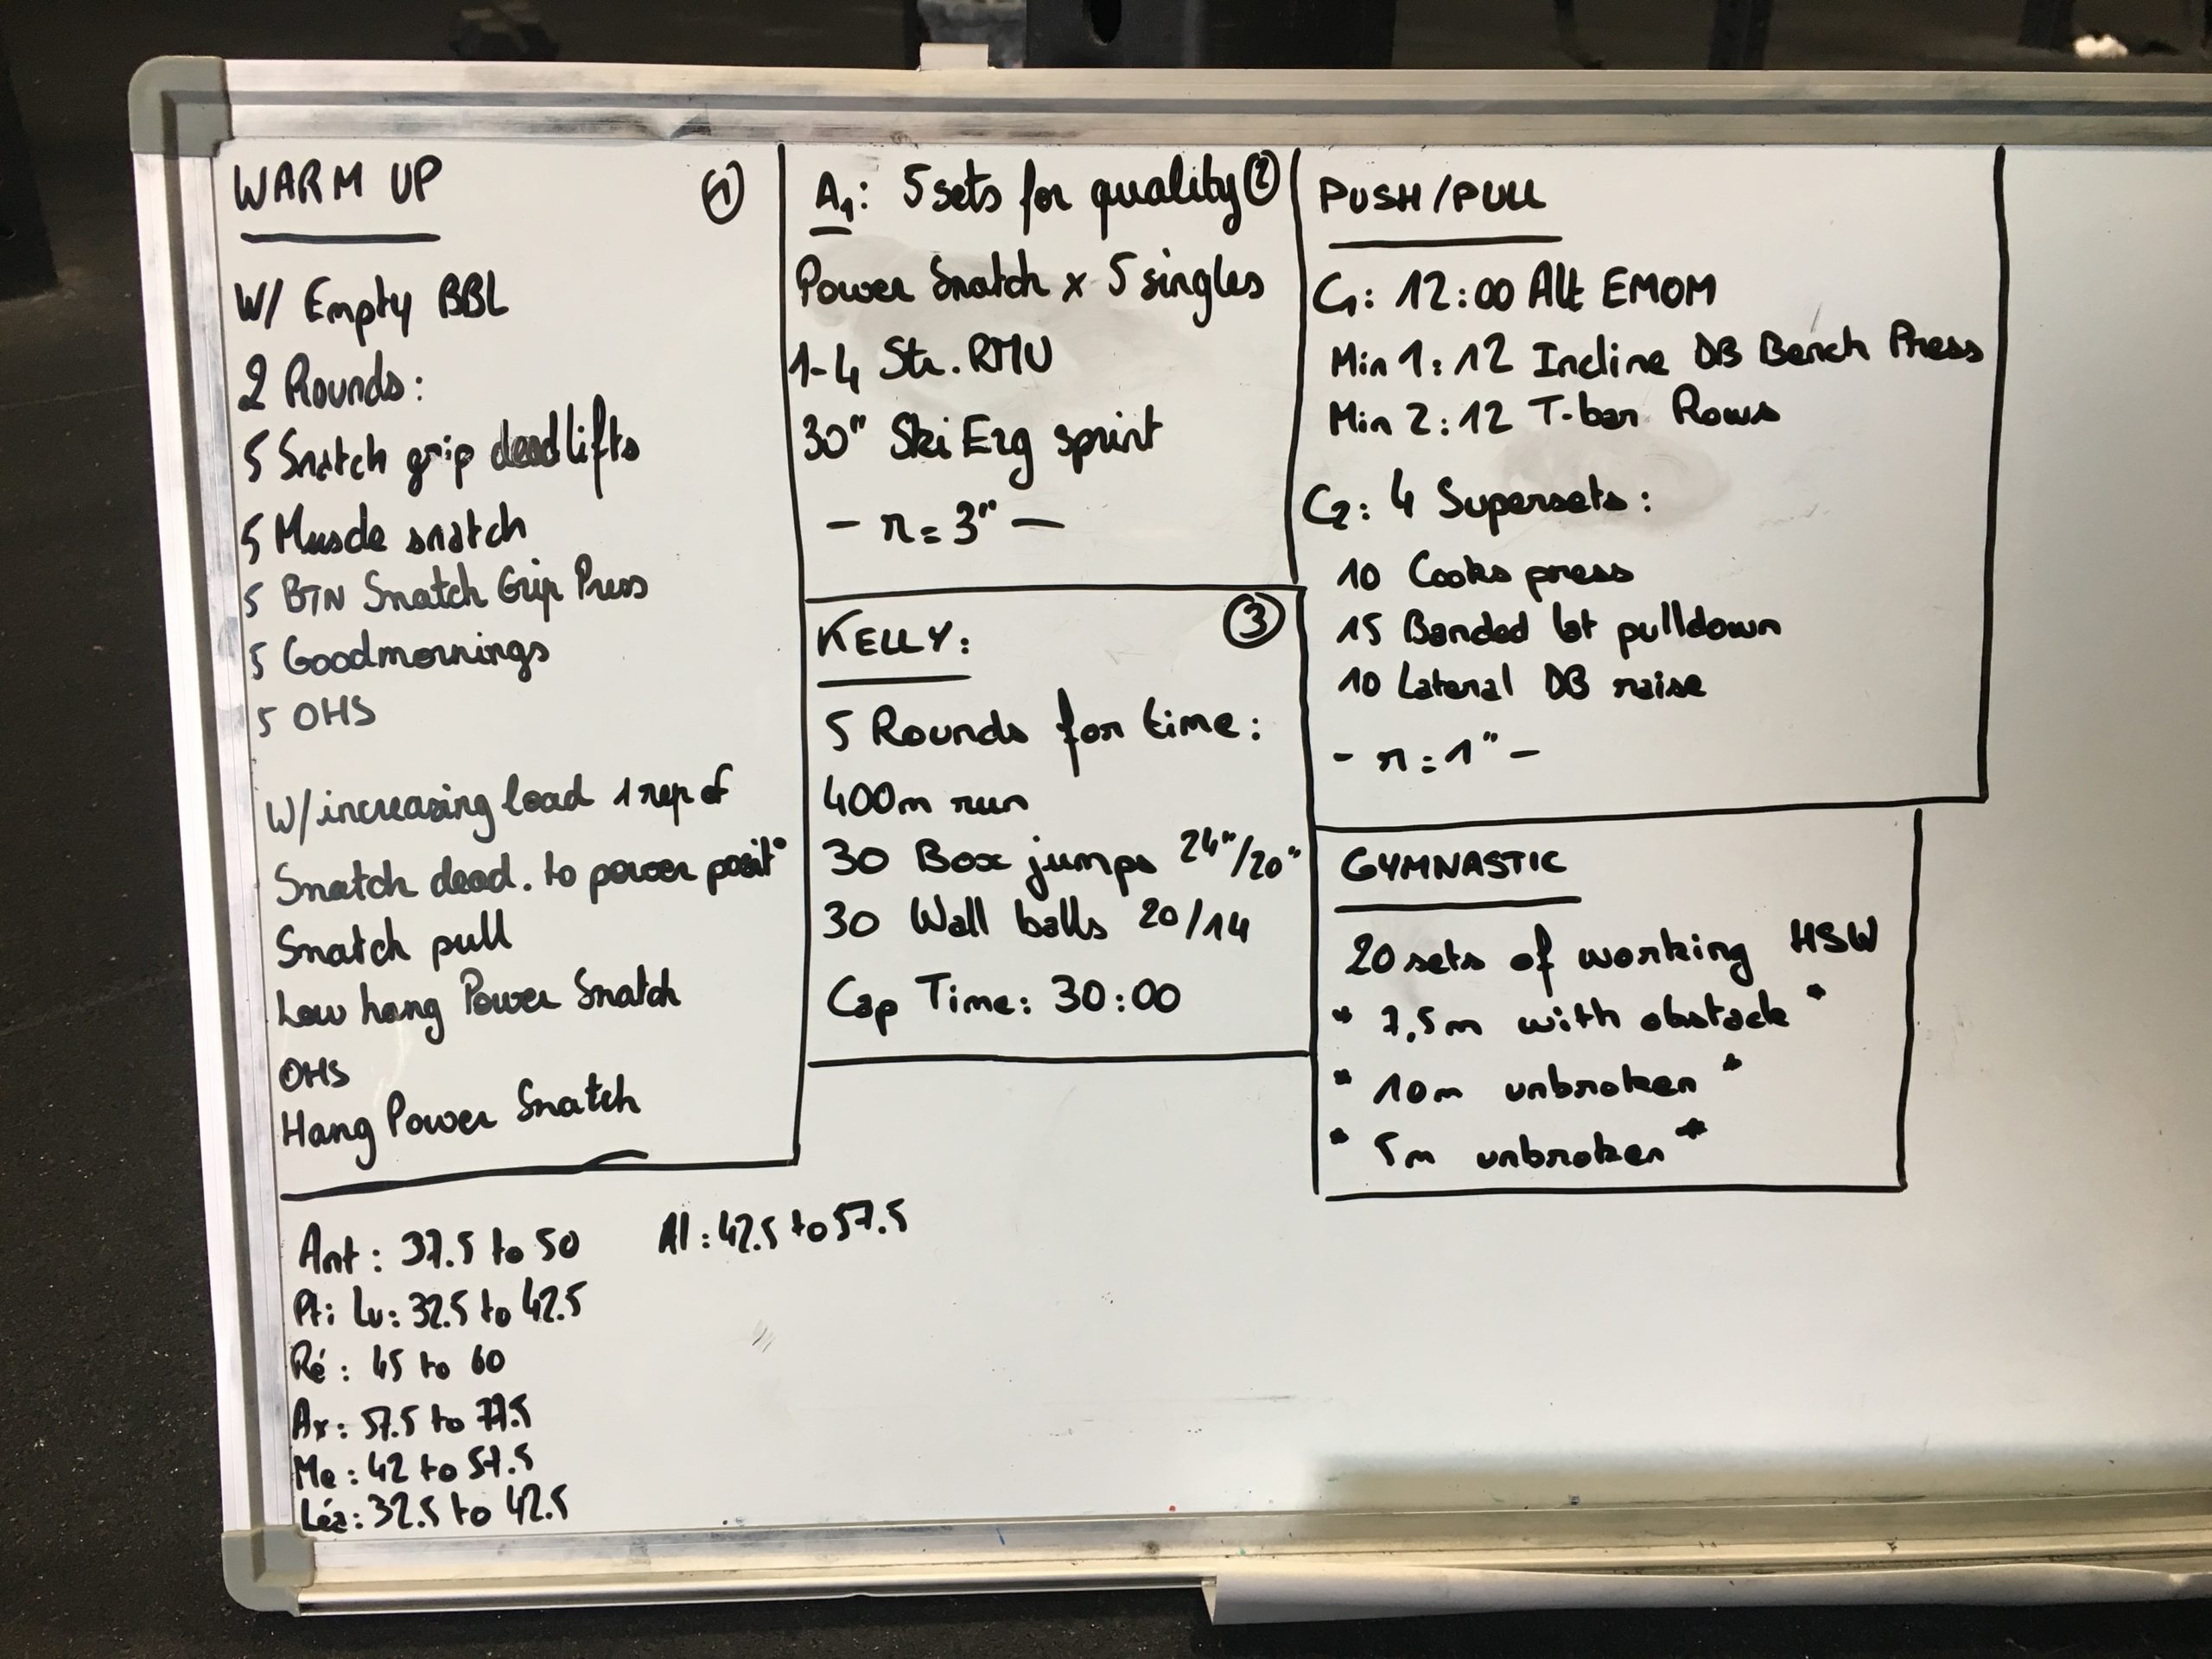 WARM UP 1
W/ Empty BBL
2 Rounds:
5 Snatch grip deadlifts
5 Muscle snatch
5 BTN Snatch Grip Press
5 Goodmornings
5 OHS
W/ increasing load 1 rep of
Snatch dead. to power posit°
Snatch pull
Low hang Power Snatch
OHS
Hang Power Snatch
A1: 5 sets for quality 2
Power Snatch x 5 singles
1-4 Str. RMU
30" Ski Erg sprint
- r = 3" -
KELLY: 3
5 Rounds for time:
400m run
30 Box jumps 24"/20"
30 Wall balls 20/14
Cap Time: 30:00
PUSH/PULL
C1: 12:00 Alt EMOM
Min 1: 12 Incline DB Bench Press
Min 2: 12 T-bar Rows
C2: 4 Supersets:
10 Cooks press
15 Banded lat pulldown
10 Lateral DB raise
- r = 1" -
GYMNASTIC
20 sets of working HSW
* 7,5m with obstacle *
* 10m unbroken *
* 5m unbroken *
Ant: 37.5 to 50 Al: 42.5 to 57.5
Pti Lu: 32.5 to 42.5
Ré: 45 to 60
Ax: 57.5 to 77.5
Me: 42 to 57.5
Léa: 32.5 to 42.5